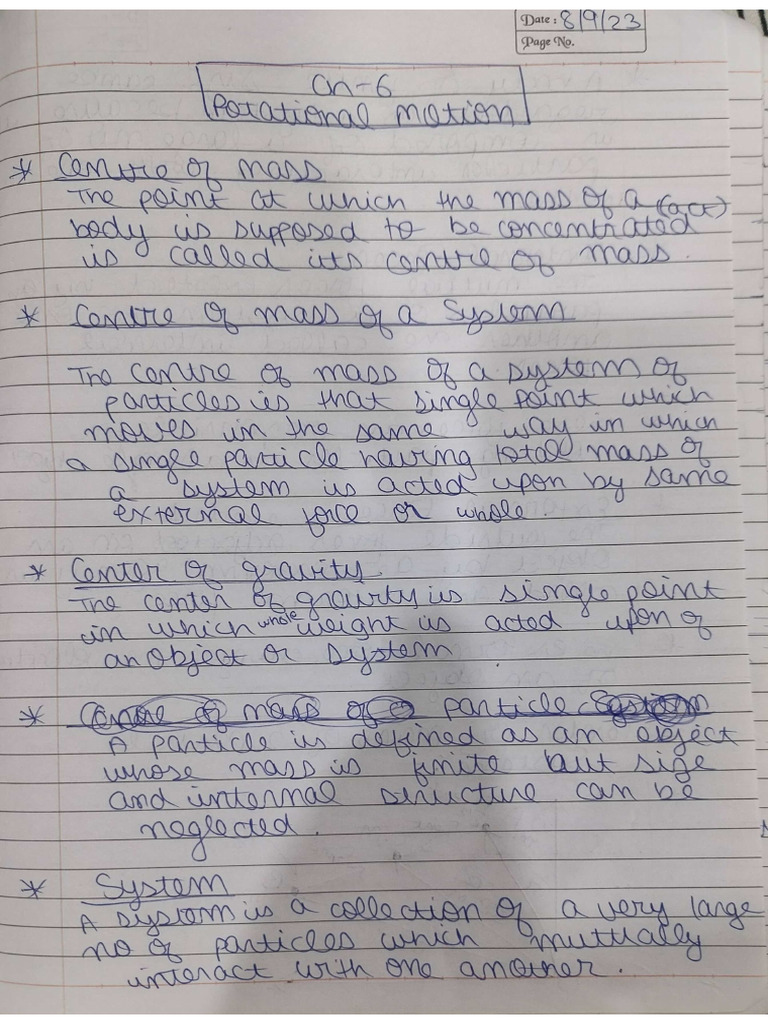 Date: 8/9/23
Page No.
Ch-6
Rotational Motion
* Centre of mass
The point at which the mass of a (act)
body is supposed to be concentrated
is called its centre of mass.
* Centre of mass of a System
The centre of mass of a system of
particles is that single point which
moves in the same way in which
a single particle having total mass of
a system is acted upon by same
external force or whole.
* Center of gravity
The center of gravity is single point
in which whole weight is acted upon of
an object or system
* Centre of mass of a particle System
A particle is defined as an object
whose mass is finite but size
and internal structure can be
neglected.
* System
A system is a collection of a very large
no of particles which mutually
interact with one another.